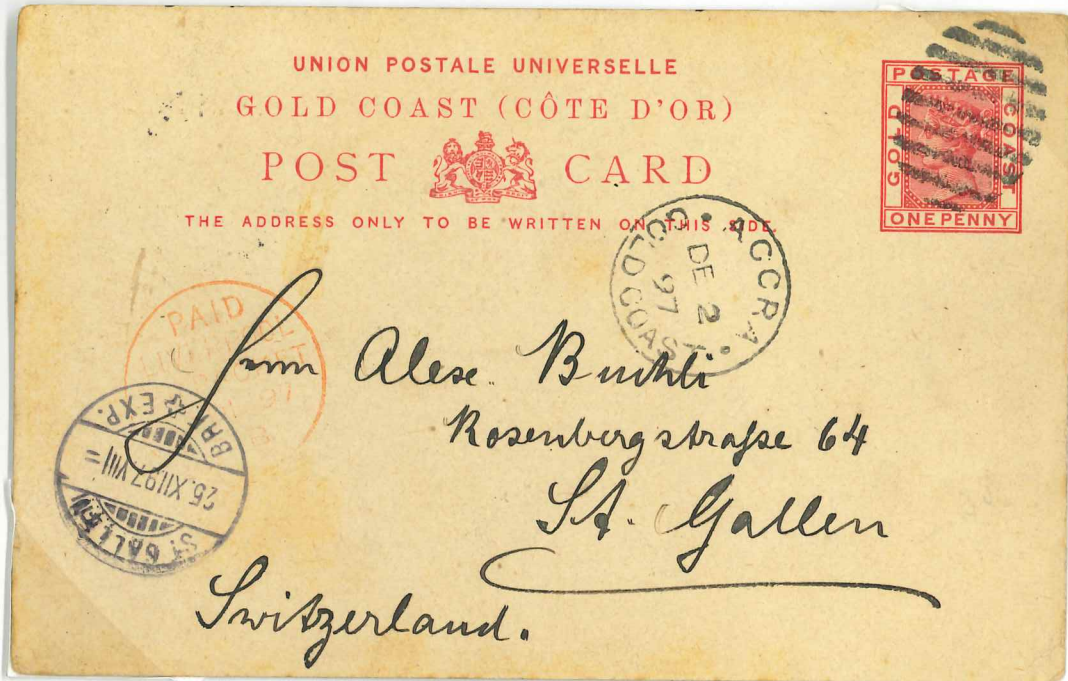 UNION POSTALE UNIVERSELLE
GOLD COAST (CÔTE D'OR)
POST CARD
THE ADDRESS ONLY TO BE WRITTEN ON THIS SIDE.
POSTAGE
GOLD COAST
ONE PENNY
ACCRA
C
DE 2
97
GOLD COAST
PAID
LIVERPOOL
97
B
ST. GALLEN
25.XII.97.VIII
BRF. EXP.
Herrn Alex. Buchli
Rosenbergstraſse 64
St. Gallen
Switzerland.